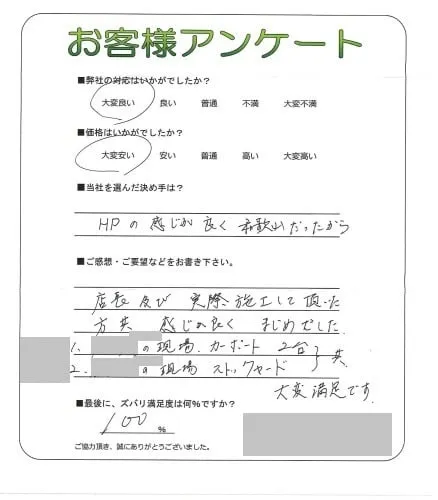 お客様アンケート
■弊社の対応はいかがでしたか?
大変良い 良い 普通 不満 大変不満
■価格はいかがでしたか?
大変安い 安い 普通 高い 大変高い
■当社を選んだ決め手は?
HPの感じが良く 和歌山だったから
■ご感想・ご要望などをお書き下さい。
店長及び 実際施工して頂いた
方共 感じが良く まじめでした
1. の現場、カーポート 2台
2. の現場 ストックヤード } 共
大変満足です。
■最後に、ズバリ満足度は何%ですか?
100 %
ご協力頂き、誠にありがとうございました。